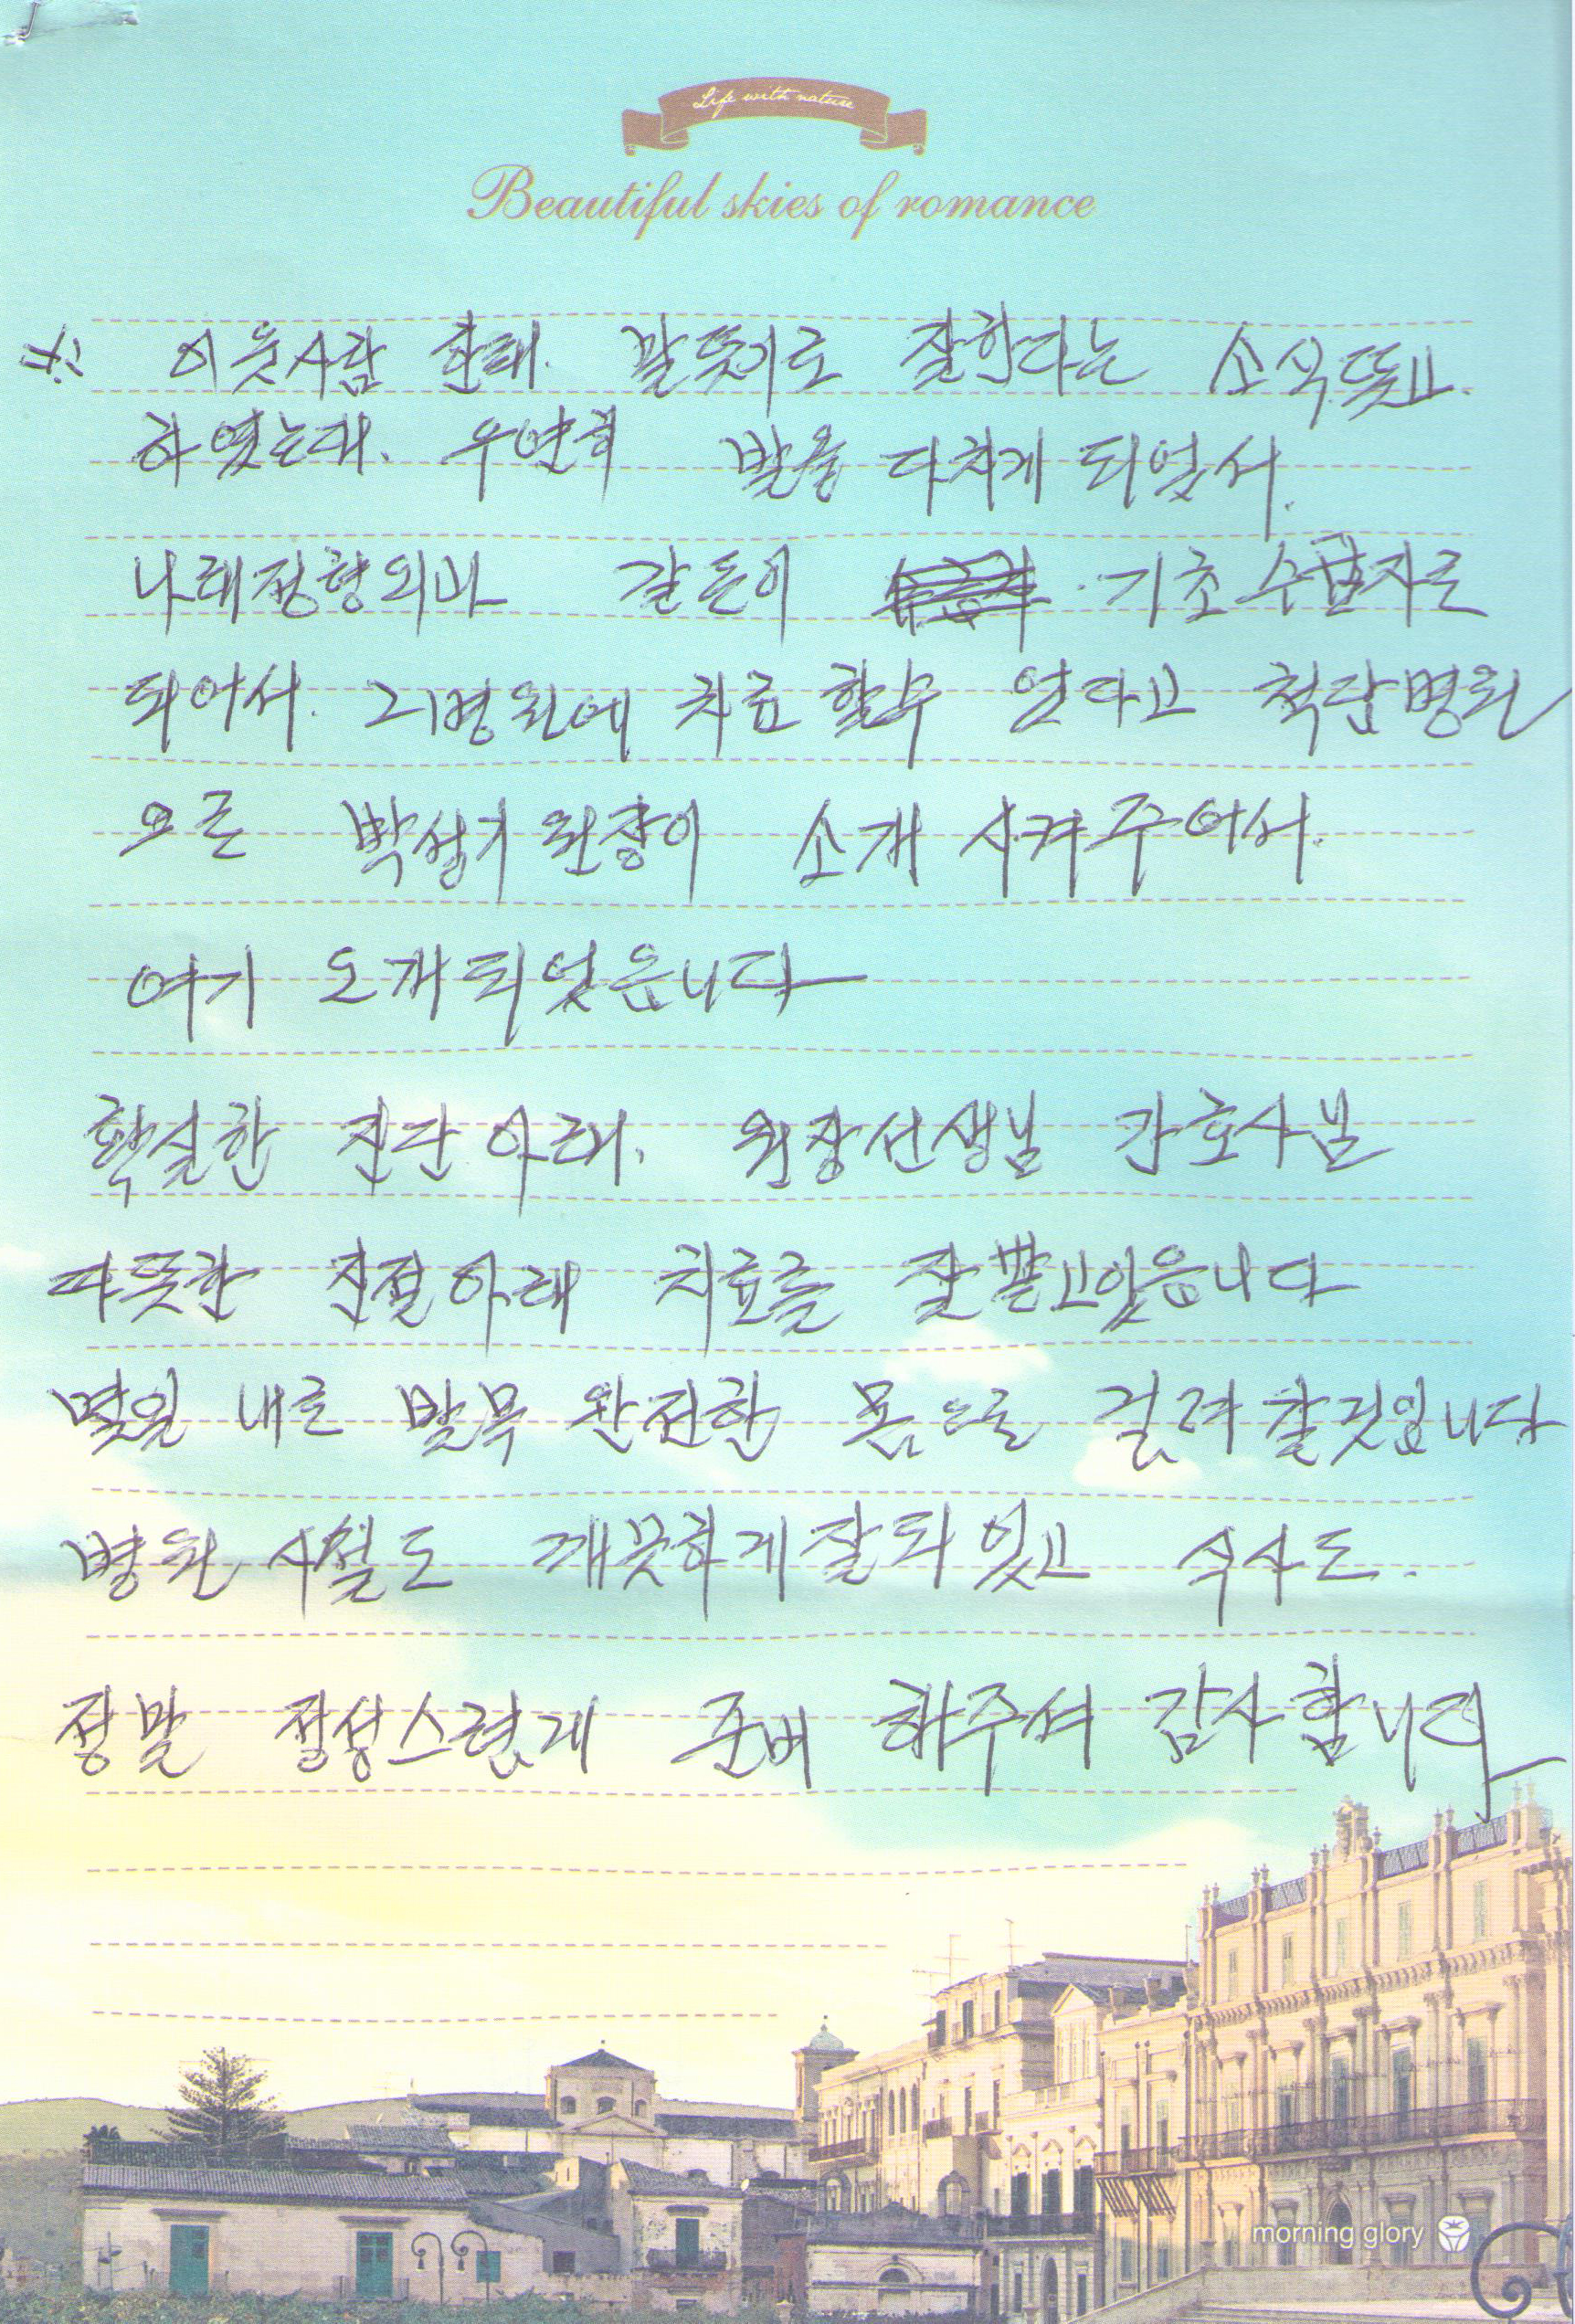 Life with nature
Beautiful skies of romance
※ 이웃사람 한태. 잘한다는 소식 듣고.
하였는대. 우연히 발을 다치게 되었서.
나래정형외과 기초수급자로
되어서. 그병원에 치료할수 없다고 척탑병원
으로 박성기 원장이 소개 시켜 주어서.
여기 오개되었읍니다
확실한 진단아래. 원장선생님 간호사님
따뜻한 친절아래 치료를 잘 받고있읍니다
몇일 내로 발목 완전한 몸으로 걸려 갈것입니다
병원 시설도 깨끗하게 잘되있고 식사도.
정말 정성스렀게 준비 해주셔 감사합니다
morning glory